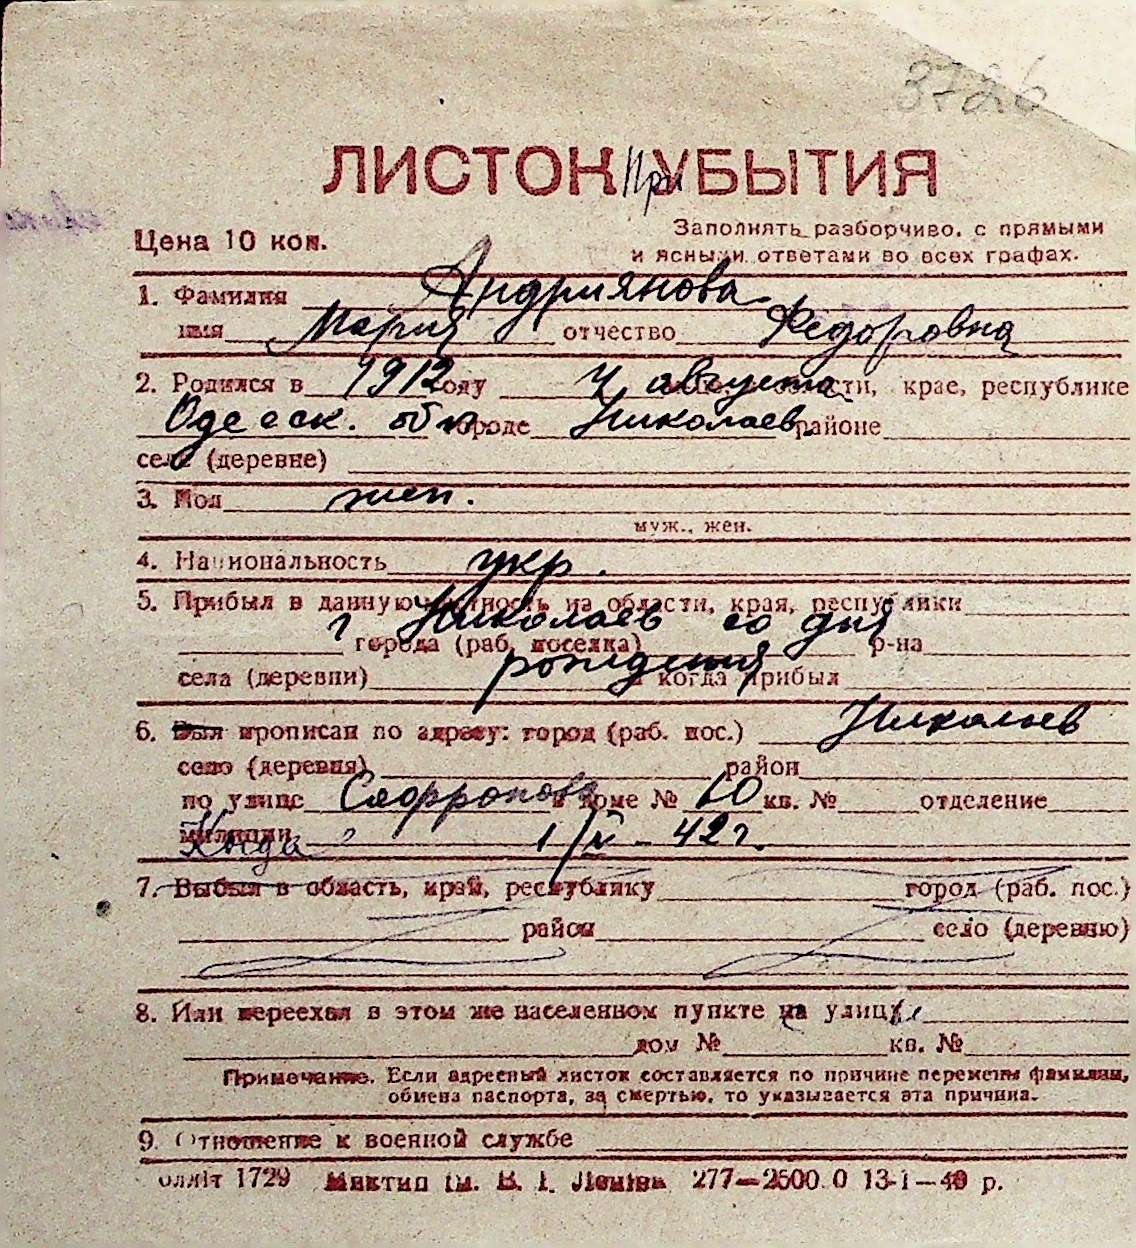 3726
ЛИСТОК При УБЫТИЯ
Цена 10 коп.
Заполнять разборчиво, с прямыми
и ясными ответами во всех графах.
1. Фамилия Андриянова
имя Мария отчество Федоровна
2. Родился в 1912 году 4 августа области, крае, республике
Одесск. обл городе Николаев районе
селе (деревне)
3. Пол жен.
муж., жен.
4. Национальность укр.
5. Прибыл в данную местность из области, края, республики
г Николаев со дня
города (раб. поселка) р-на
рождения
села (деревни) и когда прибыл
6. Был прописан по адресу: город (раб. пос.) Николаев
село (деревня) район
по улице в доме № 10 кв. № отделение
милиции Когда 1/V - 42 г.
7. Выбыл в область, край, республику город (раб. пос.)
район село (деревню)
8. Или переехал в этом же населенном пункте на улицу
дом № кв. №
Примечание. Если адресный листок составляется по причине перемены фамилии,
обмена паспорта, за смертью, то указывается эта причина.
9. Отношение к военной службе
облліт 1729 Миктип ім. В. І. Леніна 277—2500.0 13-I—40 р.